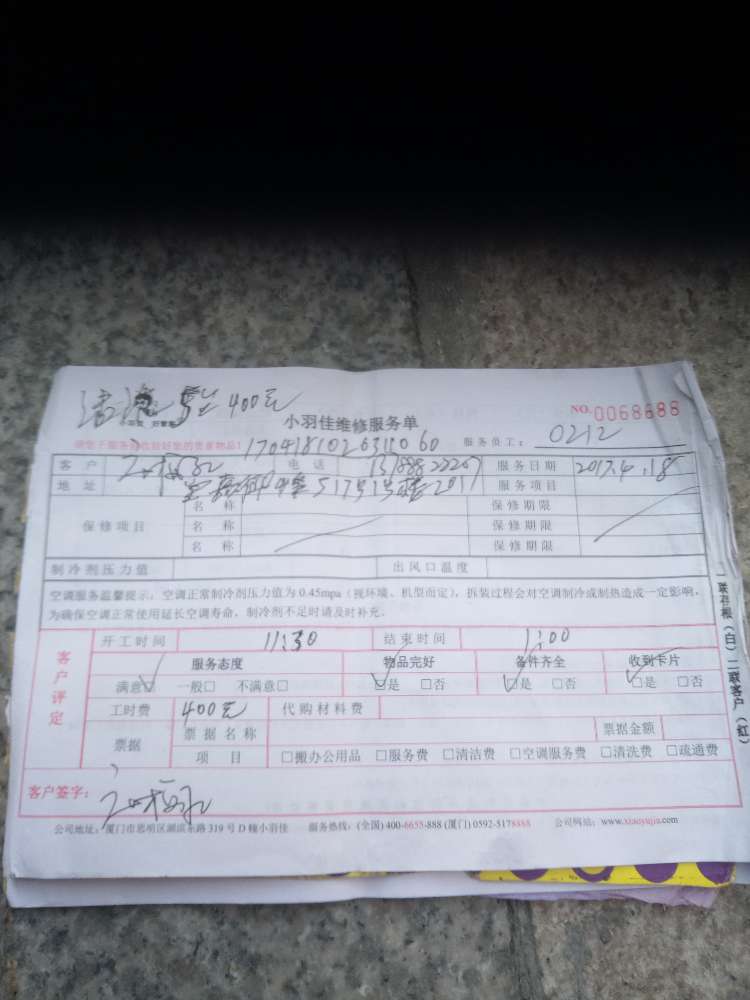 400元
小羽佳维修服务单
NO.0068688
请您于服务前收捡好您的贵重物品!
服务员工: 0212
客户 电话 服务日期 2017.4.18
地址 服务项目
保修项目
名称 保修期限
名称 保修期限
名称 保修期限
制冷剂压力值 出风口温度
空调服务温馨提示:空调正常制冷剂压力值为 0.45mpa(视环境、机型而定),拆装过程会对空调制冷或制热造成一定影响,
为确保空调正常使用延长空调寿命,制冷剂不足时请及时补充。
一联存根(白)二联客户(红)
客户评定
开工时间 11:30 结束时间 1:00
服务态度 物品完好 备件齐全 收到卡片
满意□ 一般□ 不满意□ □是 □否 □是 □否 □是 □否
工时费 400元 代购材料费
票据 票据名称 票据金额
项目 □搬办公用品 □服务费 □清洁费 □空调服务费 □清洗费 □疏通费
客户签字:
公司地址:厦门市思明区湖滨东路 319 号 D 幢小羽佳 服务热线:(全国) 400-6655-888 (厦门) 0592-5178888 公司网站:www.xiaoyujia.com